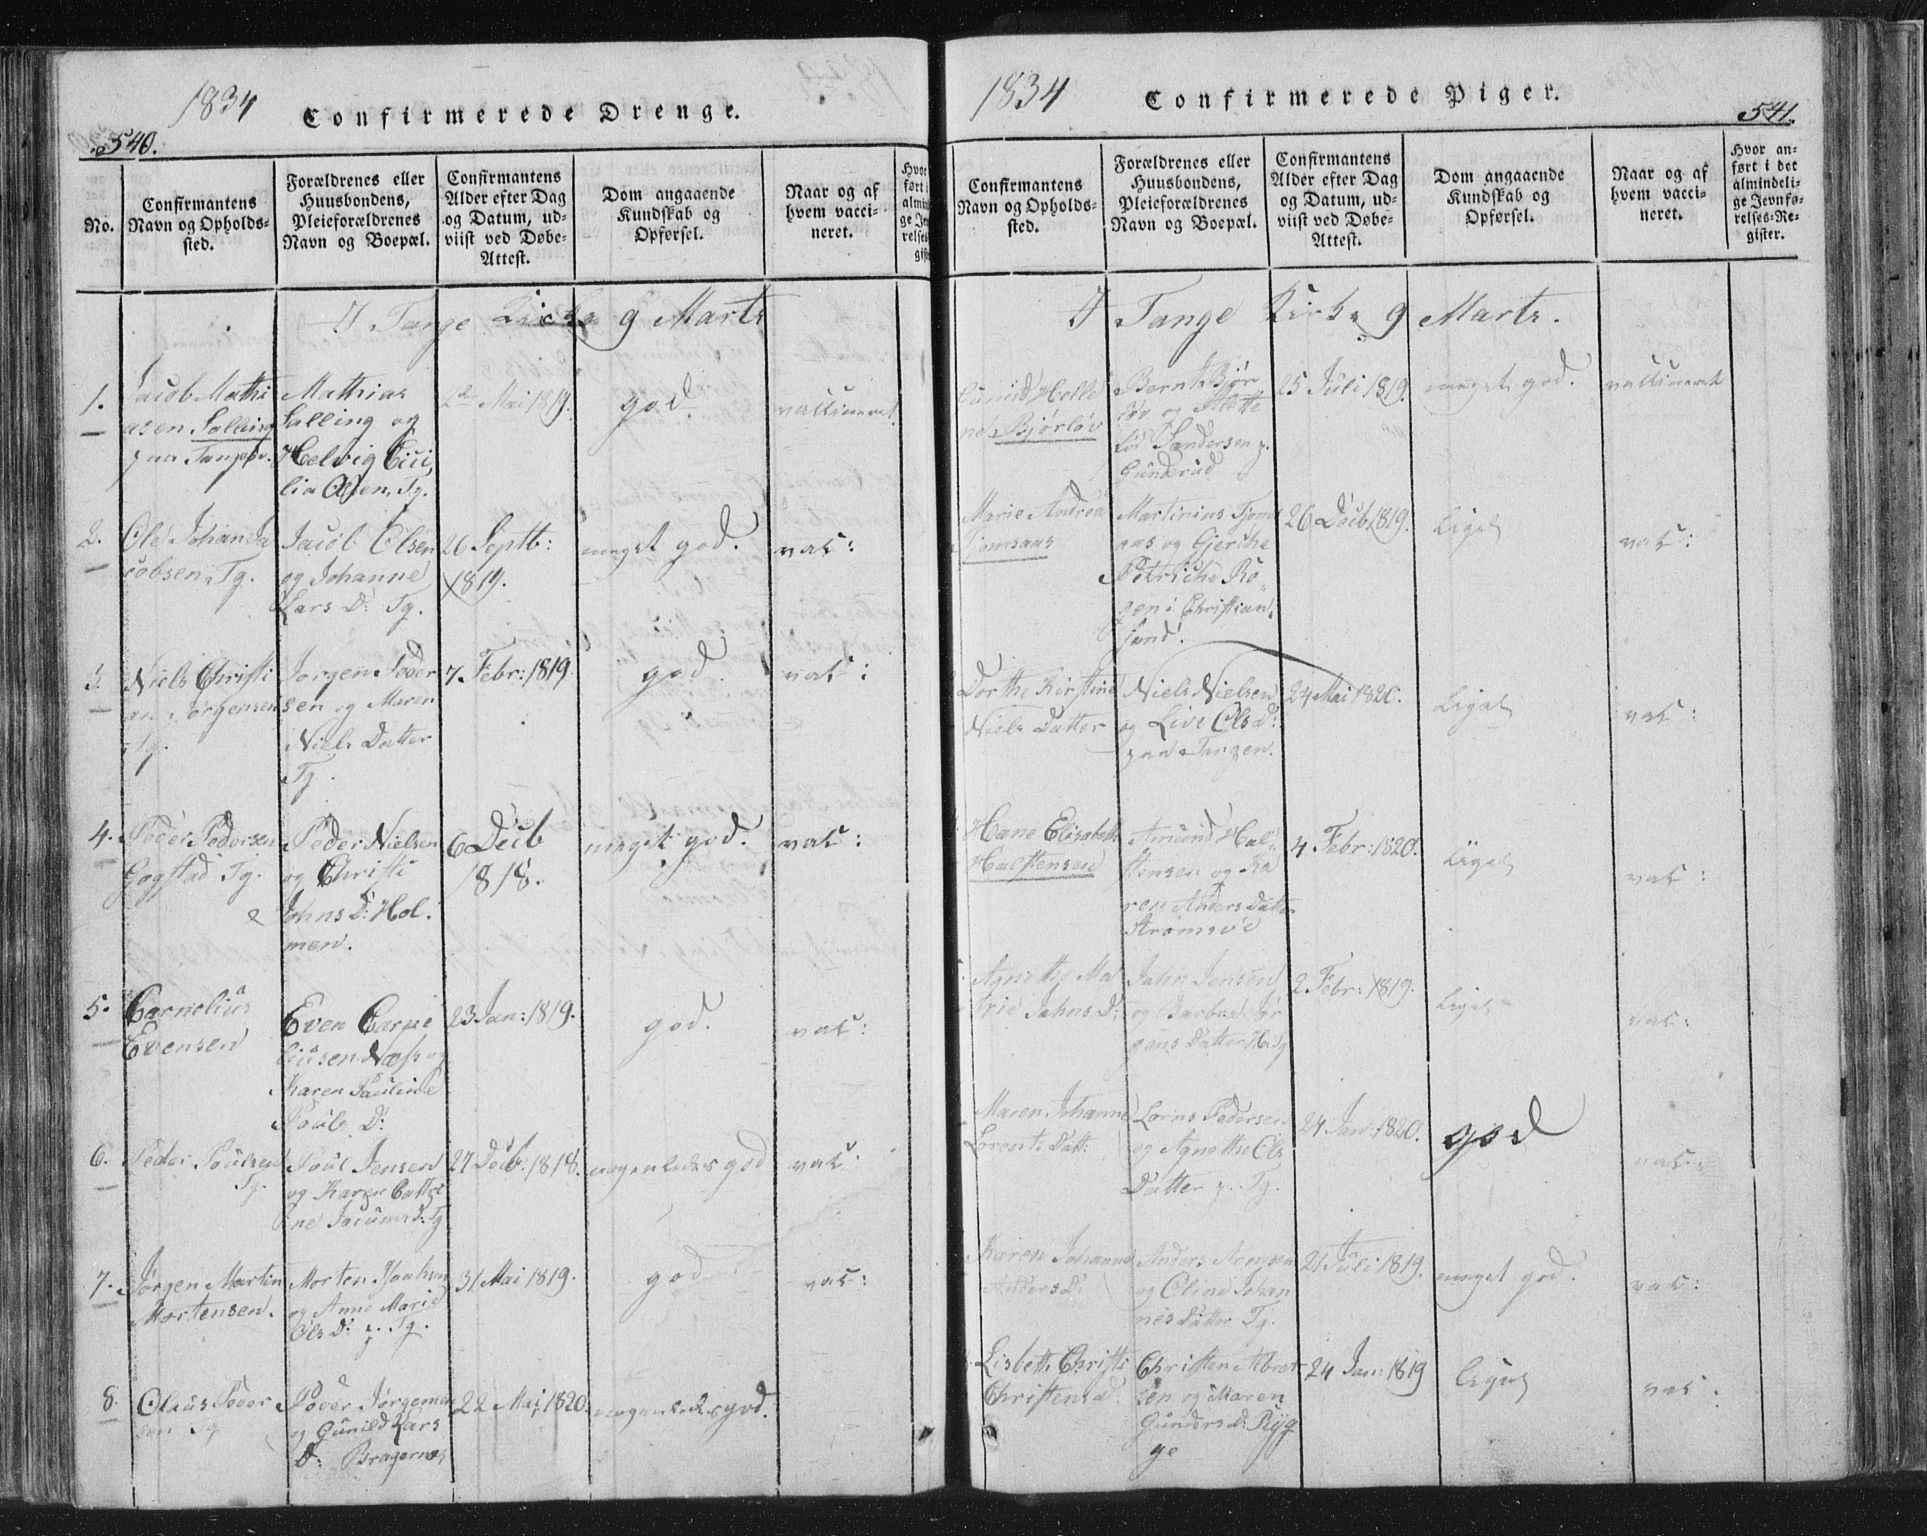 1834
Confirmerede Drenge.
540.
No.
Confirmantens
Navn og Opholds-
sted.
Forældrenes eller
Huusbondens,
Pleieforældrenes
Navn og Boepæl.
Confirmantens
Alder efter Dag
og Datum, ud-
viist ved Døbe-
Attest.
Dom angaaende
Kundskab og
Opførsel.
Naar og af
hvem vacci-
neret.
I Tange Kirke 9 Marts
1.
Jacob Mathi
asen Salling
paa Tangen.
Mathias
Salling og
Helvig Cici,
lia Olsen, Tg.
Mai 1819.
god.
vaccineret
2.
Ole Johan Ja
cobsen, Tg.
Jacob Olsen
og Johanne
Lars D: Tg.
26 Septb:
1819.
meget god.
vac:
3.
Niels Christi
an Jørgensen
Tg.
Jørgen Peder
sen og Maren
Niels Datter
Tg.
7 Febr: 1819
god.
vac:
4.
Peder Pedersen
Gogstad Tg.
Peder Nielsen
og Christi
Johns D: Hol.
men.
6 Decb
1818.
meget god.
vac:
5.
Cornelius
Evensen
Even Corne
liusen Næss og
Karen Pauline
Pouls D:
23 Jan: 1819.
god.
vac:
6.
Peder Poulsen
Tg.
Poul Jensen
og Karen Cathri
ne D: Tg
27 Decb: 1818.
nogenledes god
vac:
7.
Jørgen Martin
Mortensen.
Morten Isachsen
og Anne Marie
Ols D: p. Tg.
31 Mai 1819.
god
vac:
8.
Claus Peder
sen Tg
Peder Jørgensen
og Gunild Lars
D: Bragernes
22 Mai 1820.
nogenledes god.
1834
Confirmerede Piger.
541.
Confirmantens
Navn og Opholds-
sted.
Forældrenes eller
Huusbondens,
Pleieforældrenes
Navn og Boepæl.
Confirmantens
Alder efter Dag
og Datum, ud-
viist ved Døbe-
Attest.
Dom angaaende
Kundskab og
Opførsel.
Naar og af
hvem vacci-
neret.
Hvor an-
ført i det
almindeli-
ge Jevnfø-
relses-Re-
gister.
I Tange Kirke 9 Marts.
Bjørløv
Bernt Bjør
løv og Mette
Sandersen p.
Gunderud
25 Juli 1819.
meget god.
vaccineret
Marie Andrea
Tjomsaas
Martinius Tjoms
aas og Gjerthe
Petriche Ro
gen i Christian,
sand.
26 Decb 1819.
Liget
vac:
Dorthe Kirstine
Niels Datter
Niels Nielsen
og Live Ols D:
paa Tangen.
24 Mai 1820.
Liget
vac:
Hane Elisabeth
Halstensen
Amund Hal,
stensen og Ka
ren Anders Datter
Strømsøe
4 Febr: 1820.
Liget
vac:
Agnethe Ma
trie Jahns D:
Jahn Jensen
og Barbra Jør
gens Datter
2 Febr: 1819.
Liget
vac:
Maren Johanne
Lorents Datt:
Lorns Pedersen
og Agnethe Ols
Datter p. Tg.
24 Jan: 1820.
god
vac:
Karen Johanne
Anders D:
Anders Arnesen
og Oline Johan
nes Datter Tg.
21 Juli 1819.
meget god.
vac:
Lisbeth Christi
Christens d
Christen Abret
sen og Maren
Gunders D: Ryg
ge
24 Jan: 1819
liget
vac: